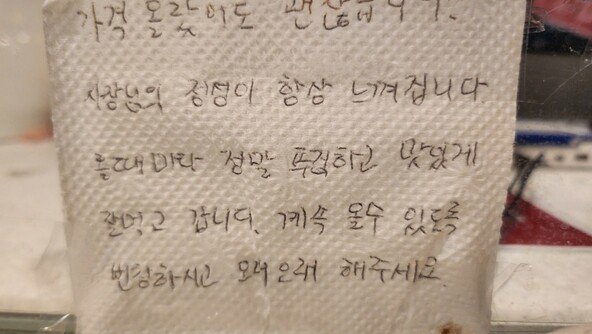 가격 올랐어도 괜찮습니다.
사장님의 정성이 항상 느껴집니다
올때마다 정말 푸짐하고 맛있게
잘먹고 갑니다. 계속 올수 있도록
번창하시고 오래오래 해주세요.